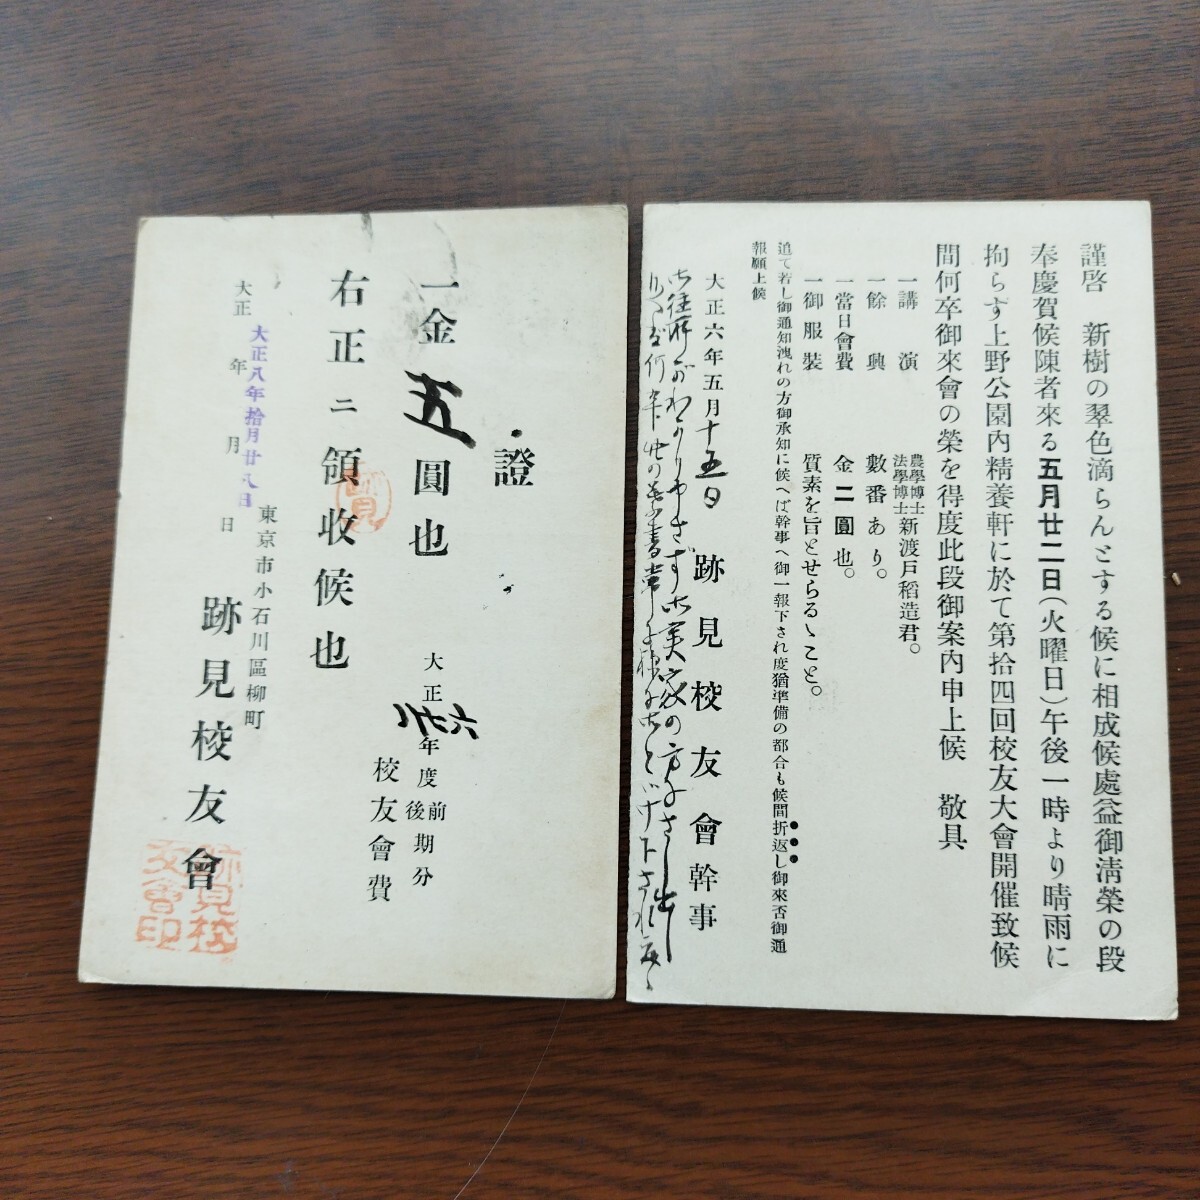 謹啓　新樹の翠色滴らんとする候に相成候處益御淸榮の段
奉慶賀候陳者來る五月廿二日（火曜日）午後一時より晴雨に
拘らす上野公園內精養軒に於て第拾四回校友大會開催致候
間何卒御來會の榮を得度此段御案內申上候　敬具
一講　演　農學博士法學博士新渡戸稻造君。
一餘　興　數番あり。
一當日會費　金二圓也。
一御服裝　質素を旨とせらるゝこと。
追て若し御通知洩れの方御承知に候へば幹事へ御一報下され度猶準備の都合も候間折返し御來否御通
報願上候
大正六年五月十五日　跡見校友會幹事
證
一金五圓也　大正六七八年度前後期分
校友會費
右正ニ領收候也
跡見
東京市小石川區柳町
大正　年　月　日
大正八年拾月廿八日
跡見校友會
跡見校友會印